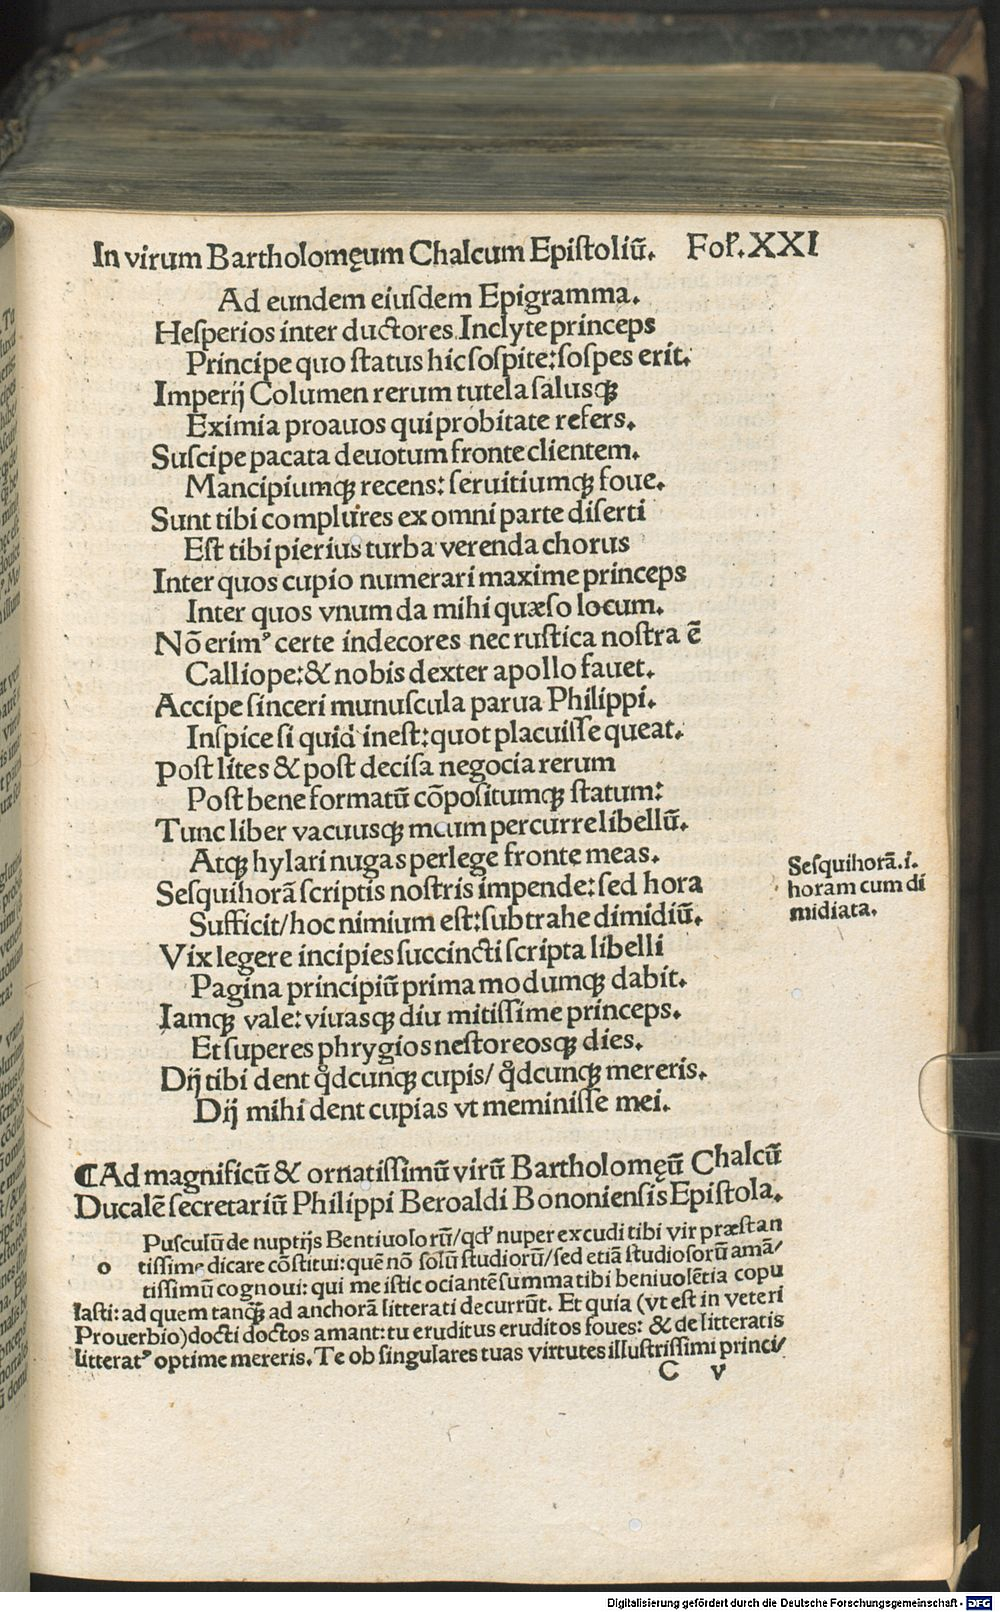 In virum Bartholomęum Chalcum Epistoliū. Fol. XXI
Ad eundem eiusdem Epigramma.
Hesperios inter ductores Inclyte princeps
Principe quo status hic sospite: sospes erit.
Imperij Columen rerum tutela salusqꝫ
Eximia proauos qui probitate refers.
Suscipe pacata deuotum fronte clientem.
Mancipiumqꝫ recens: seruitiumqꝫ foue.
Sunt tibi complures ex omni parte diserti
Est tibi pierius turba verenda chorus
Inter quos cupio numerari maxime princeps
Inter quos vnum da mihi quæso locum.
Nō erimꝰ certe indecores nec rustica nostra ē
Calliope: & nobis dexter apollo fauet.
Accipe sinceri munuscula parua Philippi.
Inspice si quid inest: quot placuisse queat.
Post lites & post decisa negocia rerum
Post bene formatū cōpositumqꝫ statum:
Tunc liber vacuusqꝫ meum percurre libellū.
Atqꝫ hylari nugas perlege fronte meas.
Sesquihorā scriptis nostris impende: sed hora
Sufficit/ hoc nimium est: subtrahe dimidiū.
Vix legere incipies succincti scripta libelli
Pagina principiū prima modumqꝫ dabit.
Iamqꝫ vale: viuasqꝫ diu mitissime princeps.
Et superes phrygios nestoreosqꝫ dies.
Dij tibi dent qͦdcunqꝫ cupis/ qͦdcunqꝫ mereris.
Dij mihi dent cupias vt meminisse mei.
Sesquihorā .i.
horam cum di
midiata.
¶Ad magnificū & ornatissimū virū Bartholomęū Chalcū
Ducalē secretariū Philippi Beroaldi Bononiensis Epistola.
o Pusculū de nuptijs Bentiuolorū/ qd' nuper excudi tibi vir præstan
tissime dicare cōstitui: quē nō solū studiorū/ sed etiā studiosorū amā/
tissimū cognoui: qui me istic ociantē summa tibi beniuolētia copu
lasti: ad quem tanqꝫ ad anchorā litterati decurrūt. Et quia (vt est in veteri
Prouerbio) docti doctos amant: tu eruditus eruditos foues: & de litteratis
litteratꝰ optime mereris. Te ob singulares tuas virtutes illustrissimi princi/
C v
Digitalisierung gefördert durch die Deutsche Forschungsgemeinschaft - DFG